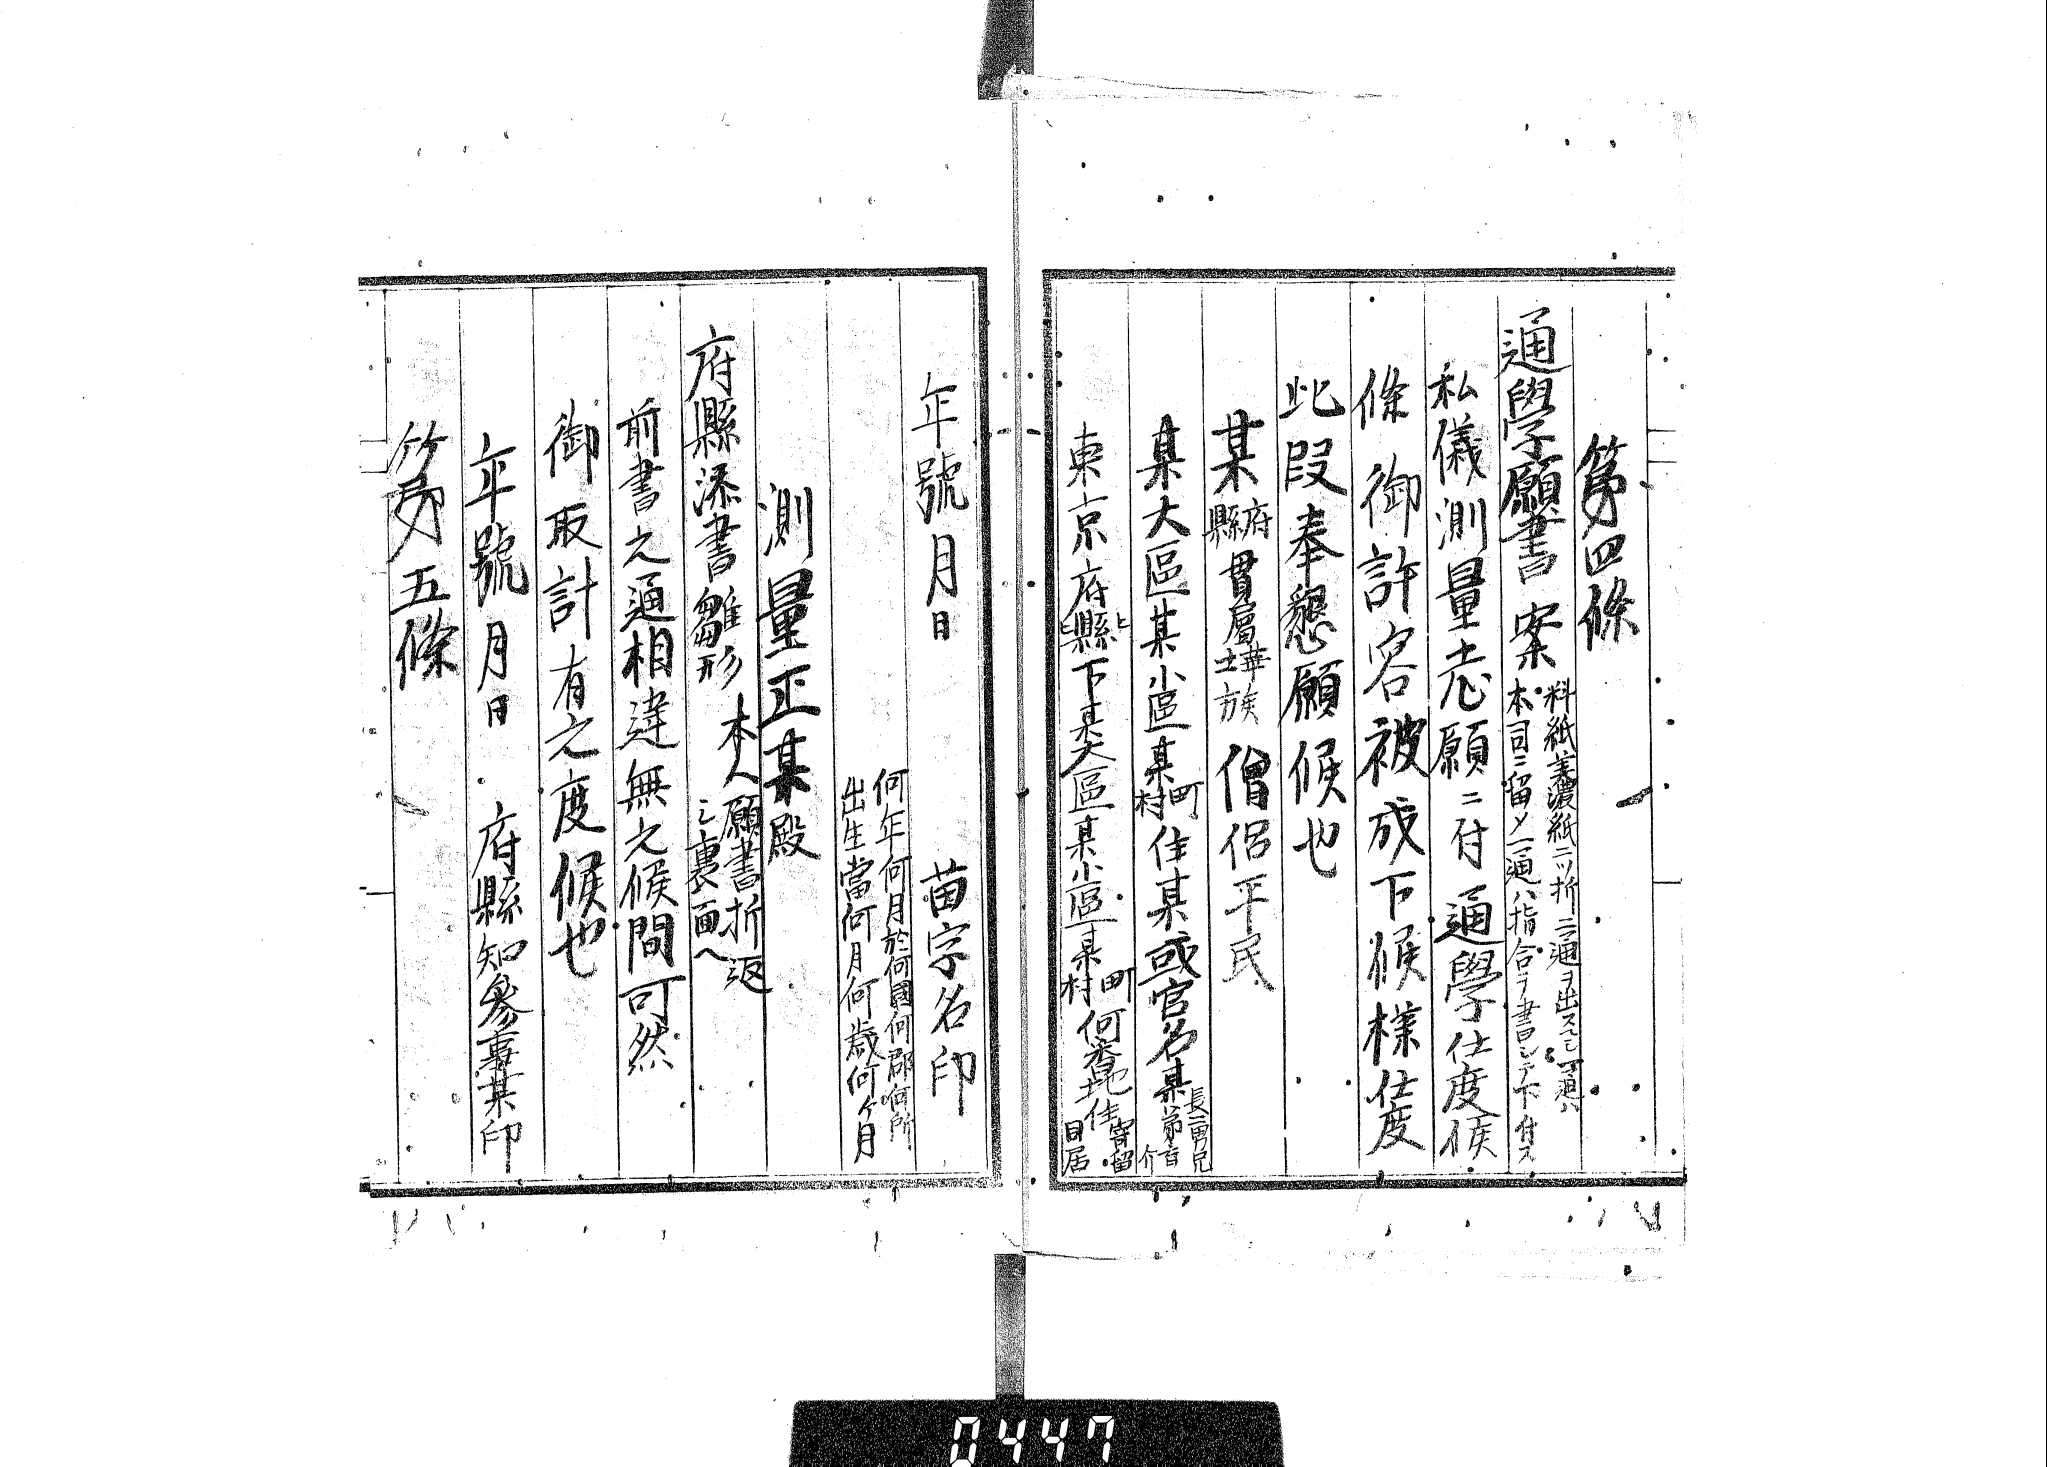 第四條
通學願書案
料紙美濃紙二ツ折ニテ二通ヲ出スヘシ一通ハ
本司ニ留メ一通ハ指令ヲ書シテ下付ス
私儀測量志願ニ付通學仕度候
條御許容被成下候樣仕度
此段奉懇願候也
某府縣貫屬華士族僧侶平民
某大區某小區某町村住某或官名某長二男兄弟
東京府縣下某大區某小區某町村何番地住寄留同居
年號月日 苗字名印
何年何月於何國何郡何所
出生當何月何歳何ヶ月
測量正某殿
府縣添書雛形
本人願書折返
シ裏面ヘ
前書之通相違無之候間可然
御取計有之度候也
年號月日 府縣知參事某印
第五條
0447